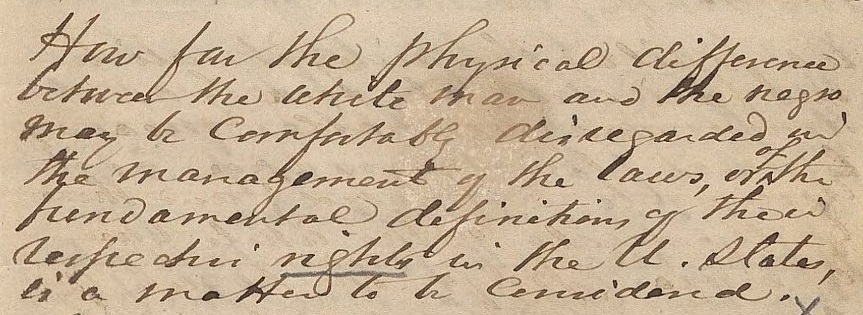 How far the physical difference
between the white man and the negro
may be comfortably disregarded in
the management of the laws, or of the
fundamental definitions of their
respective rights in the U. States,
is a matter to be considered.